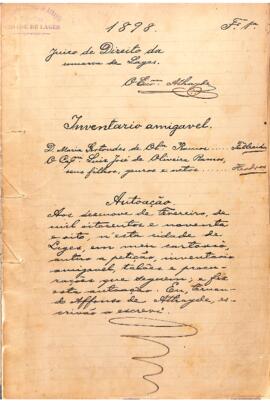 1898.
Fs. 1.
DE LAGES
Juizo de Direito da
comarca de Lages.
O Escm. Athayde
Inventario amigavel.
D. Maria de Olra. Ramos ..... Fallecida
O Capm. Luis José de Oliveira Ramos,
seus filhos, genros e netos ..... Herdeiros
Autoação
Aos desenove de Fevereiro, de
mil oitocentos e noventa
e oito, n'esta cidade de
Lages, em meu cartorio,
autuo a petição, inventario
amigavel, talões e procu-
rações que seguem; e fiz
esta autoação. Eu, Fernan-
do Affonso de Athayde, es-
crivão o escrevi.